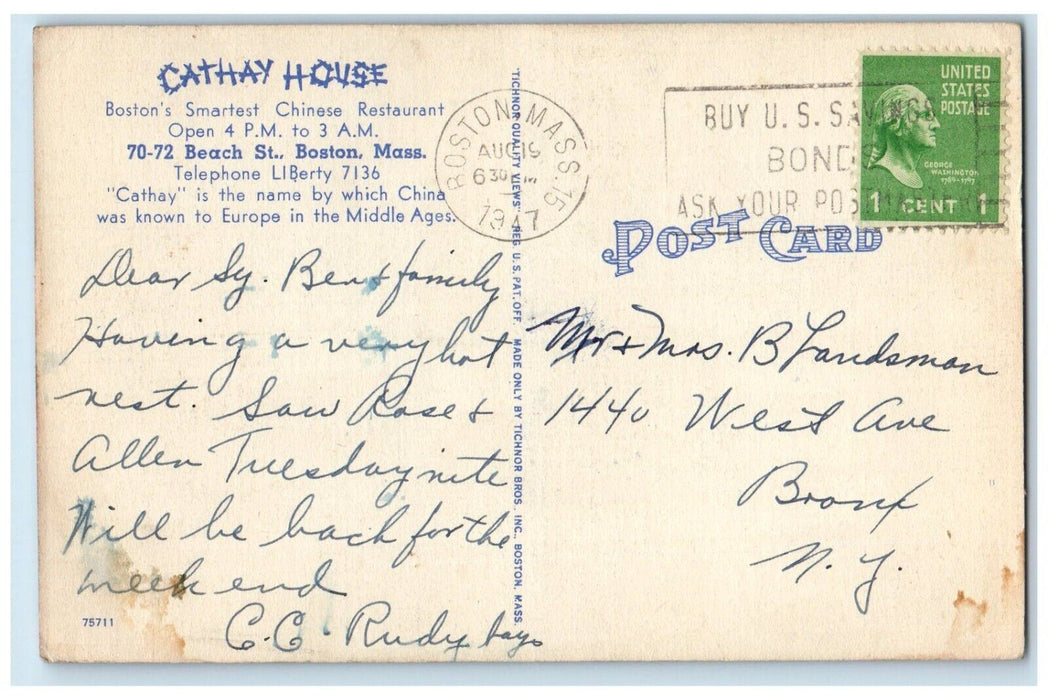 CATHAY HOUSE
Boston's Smartest Chinese Restaurant
Open 4 P.M. to 3 A.M.
70-72 Beach St., Boston, Mass.
Telephone LIBerty 7136
"Cathay" is the name by which China
was known to Europe in the Middle Ages.
Dear Sy. Ben & family
Having a very hot
rest. Saw Rose &
Allen Tuesday nite
Will be back for the
week end
C.C. Rudy
75711
"TICHNOR QUALITY VIEWS" REG. U.S. PAT. OFF. MADE ONLY BY TICHNOR BROS. INC., BOSTON, MASS.
BOSTON, MASS. 15
AUG 19
630 PM
1947
BUY U.S. SAVINGS
BONDS
ASK YOUR POSTMASTER
UNITED
STATES
POSTAGE
GEORGE
WASHINGTON
1789-1797
1 CENT 1
POST CARD
Mr + Mrs. B Landsman
1440 West Ave
Bronx
N.Y.